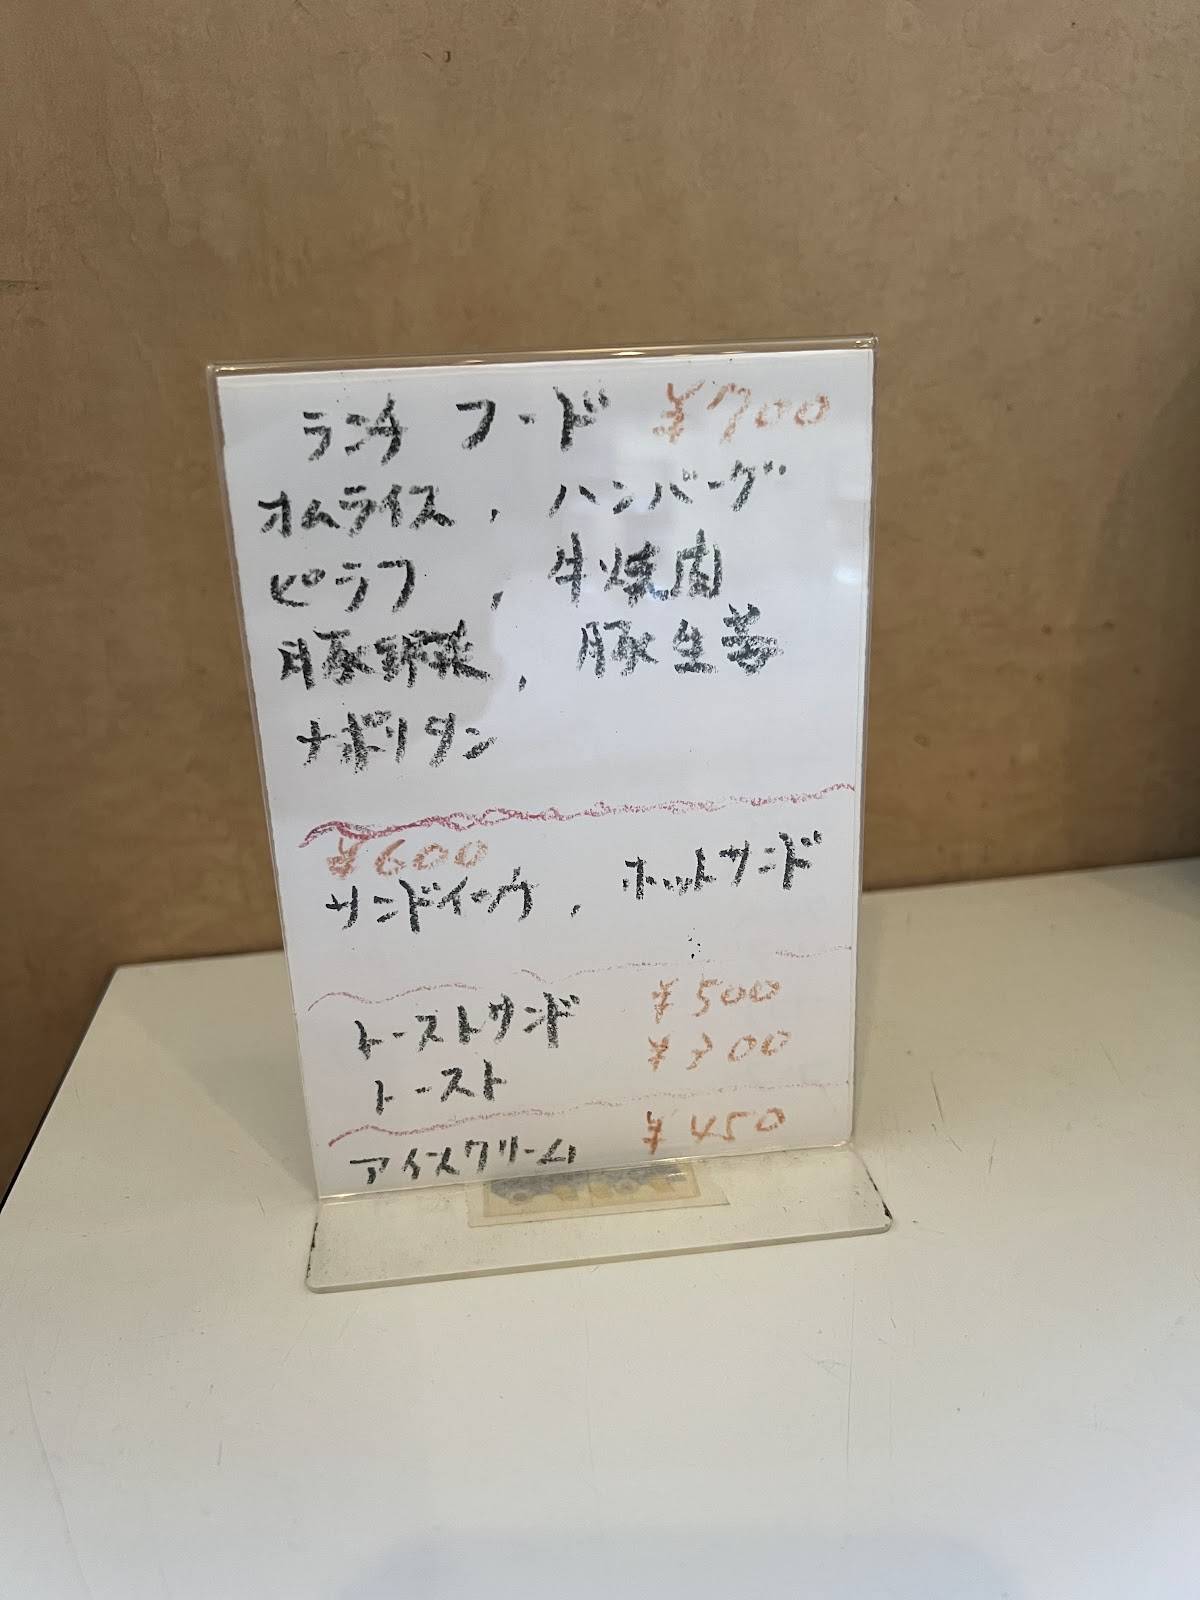 ランチ フード ¥700
オムライス , ハンバーグ
ピラフ , 牛焼肉
豚野菜 , 豚生姜
ナポリタン
¥600
サンドイッチ , ホットサンド
トーストサンド ¥500
トースト ¥300
アイスクリーム ¥450